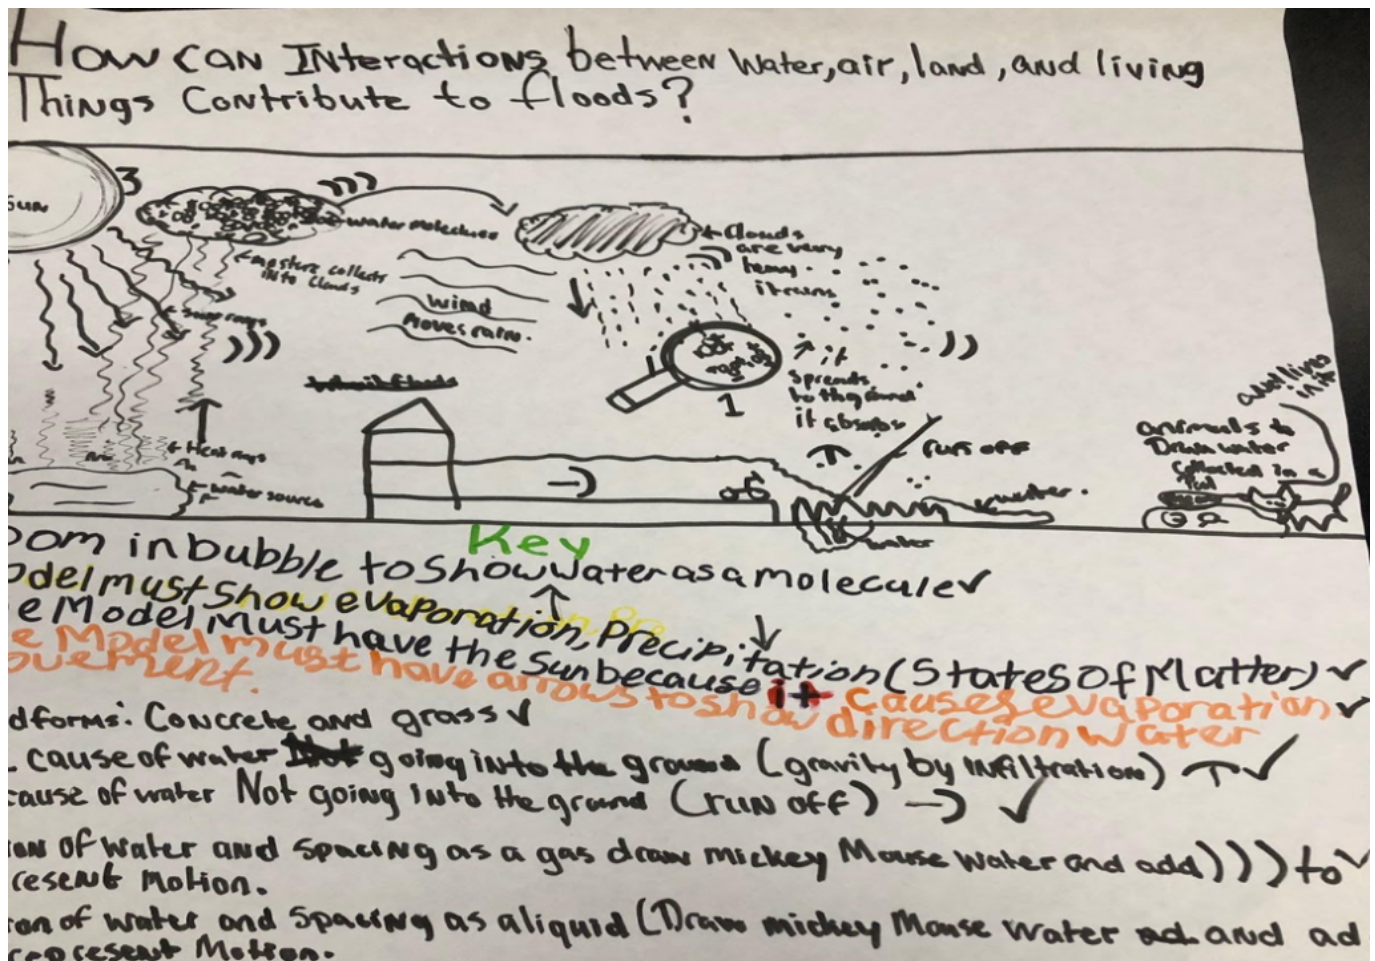 How can Interactions between water, air, land, and living
Things Contribute to floods?
Sun
3
water molecules
moisture collects
into clouds
Solar rays
Wind
Moves rain.
Clouds
are very
heavy.
it rains
1
it
spreads
to the ground
it absorbs
Heat rays
water source
run off
water.
water
animals to
Drain water
Collected in a
and lives
in it
Key
oom in bubble to show water as a molecule ✓
odel must show evaporation, Precipitation (States of Matter) ✓
e Model Must have the sun because it causes evaporation ✓
e Model must have arrows to show direction water
ovement.
dforms: Concrete and grass ✓
cause of water Not going into the ground (gravity by infiltration) ✓
cause of water Not going into the ground (run off) → ✓
on of water and spacing as a gas draw mickey Mouse water and add))) to ✓
resent motion.
on of water and spacing as a liquid (Draw mickey Mouse water ad and ad
represent Motion.